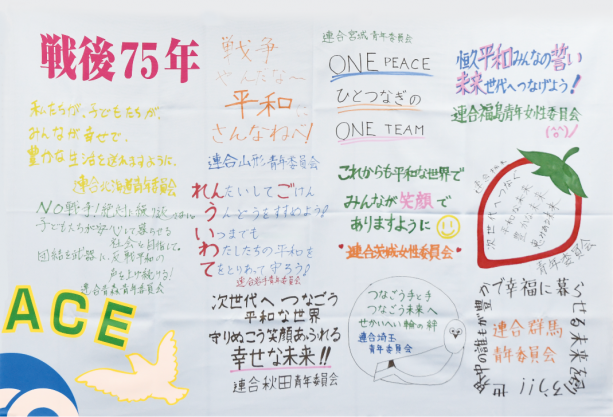 戦後75年
私たちが、子どもたちが、
みんなが幸せで、
豊かな生活を送れますように、
連合北海道青年委員会
NO戦争！絶対に繰り返さない
子どもたちが安心して暮らせる
社会を目指して、
団結を武器に、反戦平和の
声を上げ続ける！
連合青森青年委員会
ACE
戦争
やんだな〜
平和に
さんなねべ！
連合山形青年委員会
れんたいしてごけん
うんどうをすすめよう！
いつまでも
わたしたちの平和を
てをとりあって守ろう！
連合岩手青年委員会
次世代へつなごう
平和な世界
守りぬこう笑顔あふれる
幸せな未来!!
連合秋田青年委員会
連合宮城青年委員会
ONE PEACE
ひとつなぎの
ONE TEAM
これからも平和な世界で
みんなが笑顔で
ありますように
連合茨城女性委員会
つなごう手と手
つなごう未来へ
せかいいち輪の絆
連合埼玉
青年委員会
恒久平和みんなの誓い
未来世代へつなげよう！
連合福島青年女性委員会
(^o^)/
次世代へつなぐ
平和な未来
豊かな未来
青年委員会
で幸福に暮らせる未来を創ろう!!
世界中の誰もが豊か
連合群馬
青年委員会